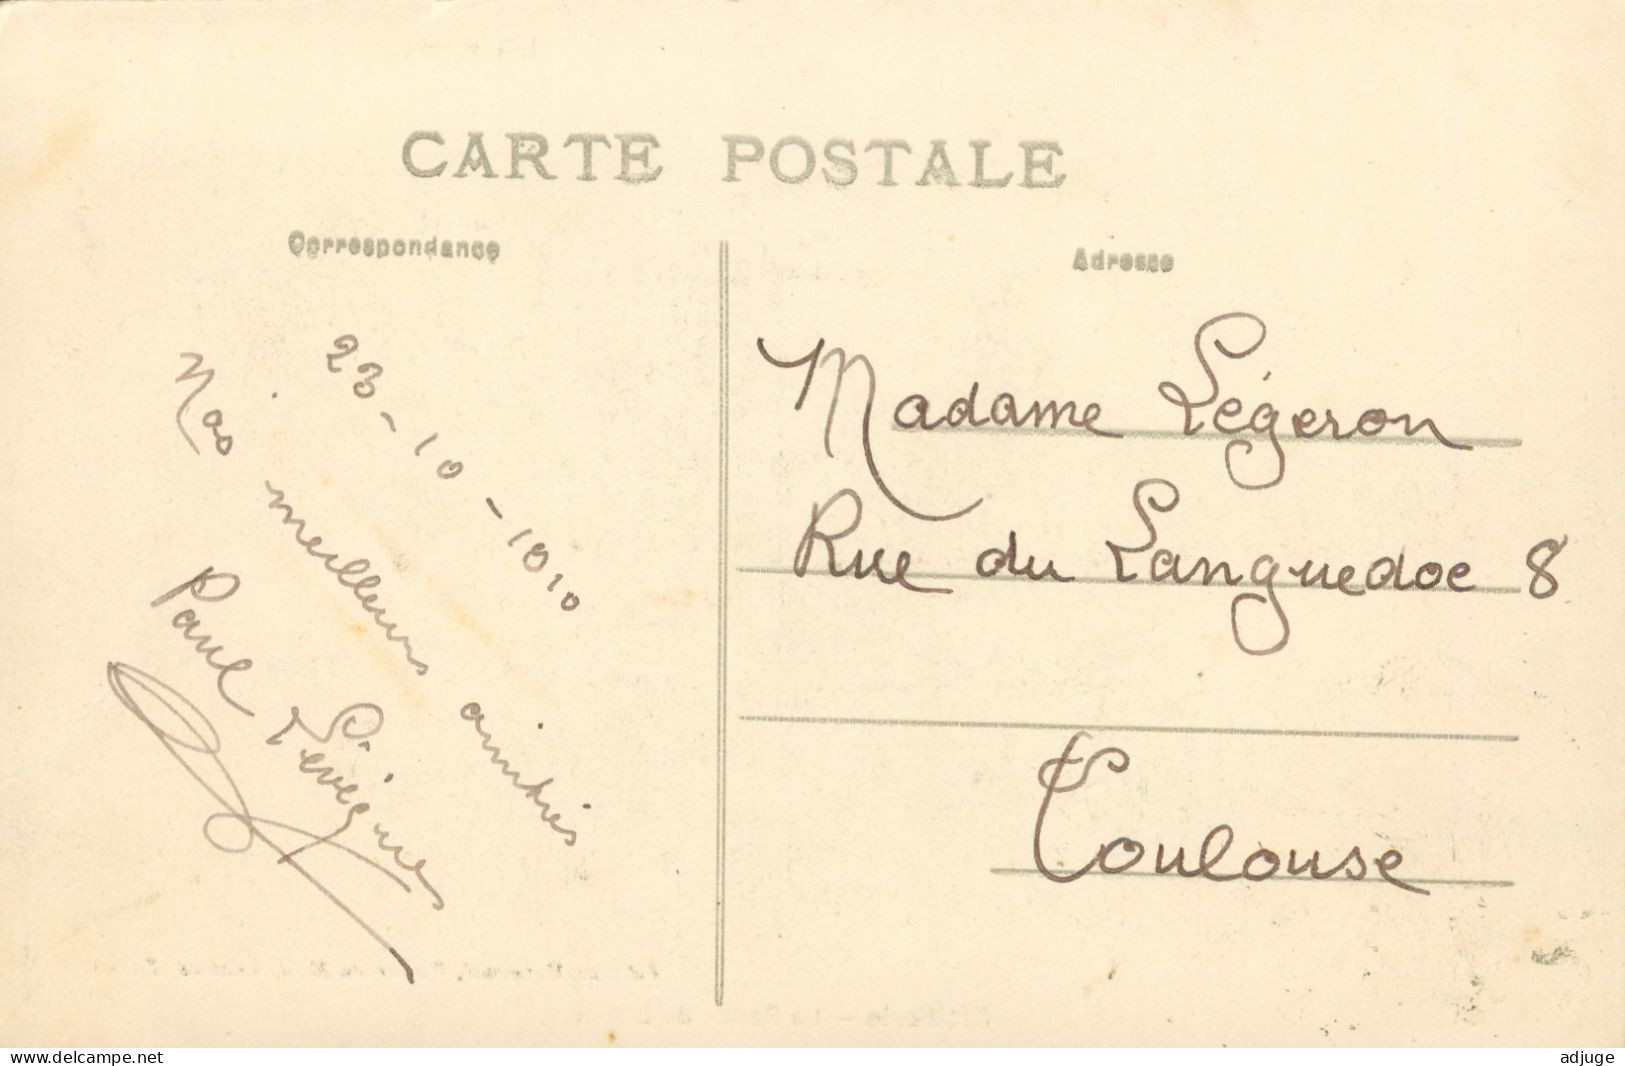 CARTE POSTALE
Correspondance
Adresse
23-10-1910
Nos meilleurs amitiés
Paul Lévêques
Madame Légeron
Rue du Languedoc 8
Toulouse
www.delcampe.net
adjuge